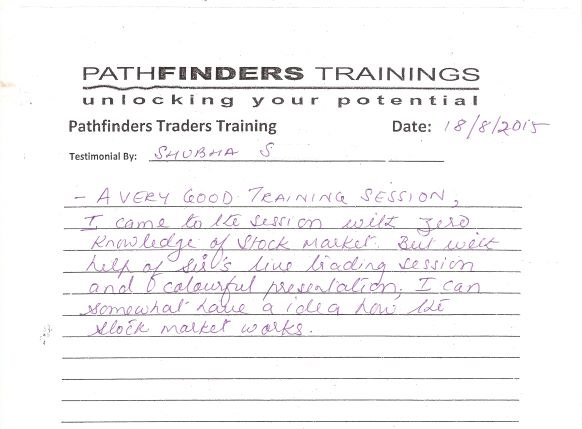 PATHFINDERS TRAININGS
unlocking your potential
Pathfinders Traders Training Date: 18/8/2015
Testimonial By: SHUBHA S
- A VERY GOOD TRAINING SESSION,
I came to the session with zero
knowledge of stock market. But with
help of sir's live trading session
and colourful presentation, I can
somewhat have a idea how the
stock market works.